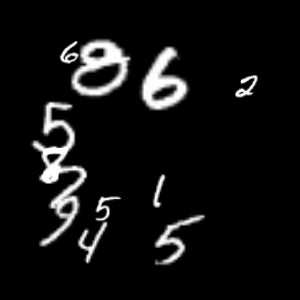 6 8 6
2
5
8
9 5 1
4 5